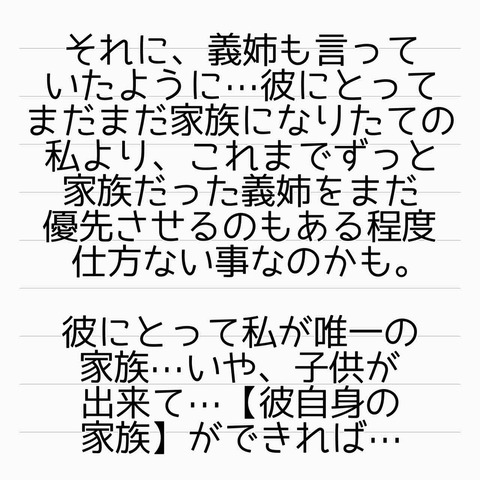 それに、義姉も言って
いたように…彼にとって
まだまだ家族になりたての
私より、これまでずっと
家族だった義姉をまだ
優先させるのもある程度
仕方ない事なのかも。
彼にとって私が唯一の
家族…いや、子供が
出来て…【彼自身の
家族】ができれば…